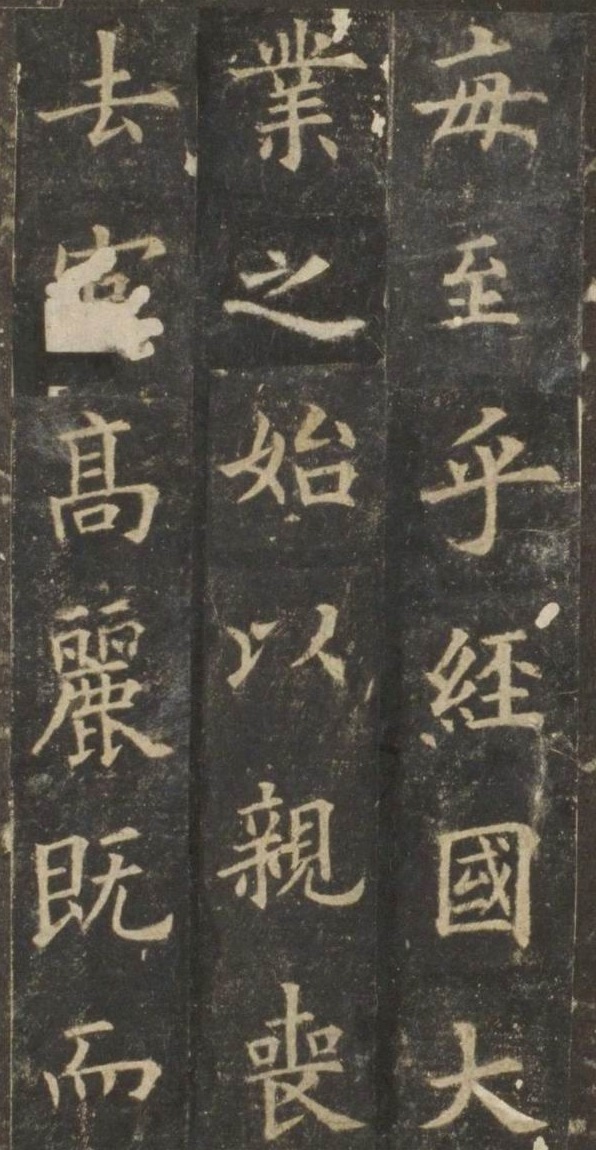 每至乎經國大
業之始以親喪
去髙麗既而